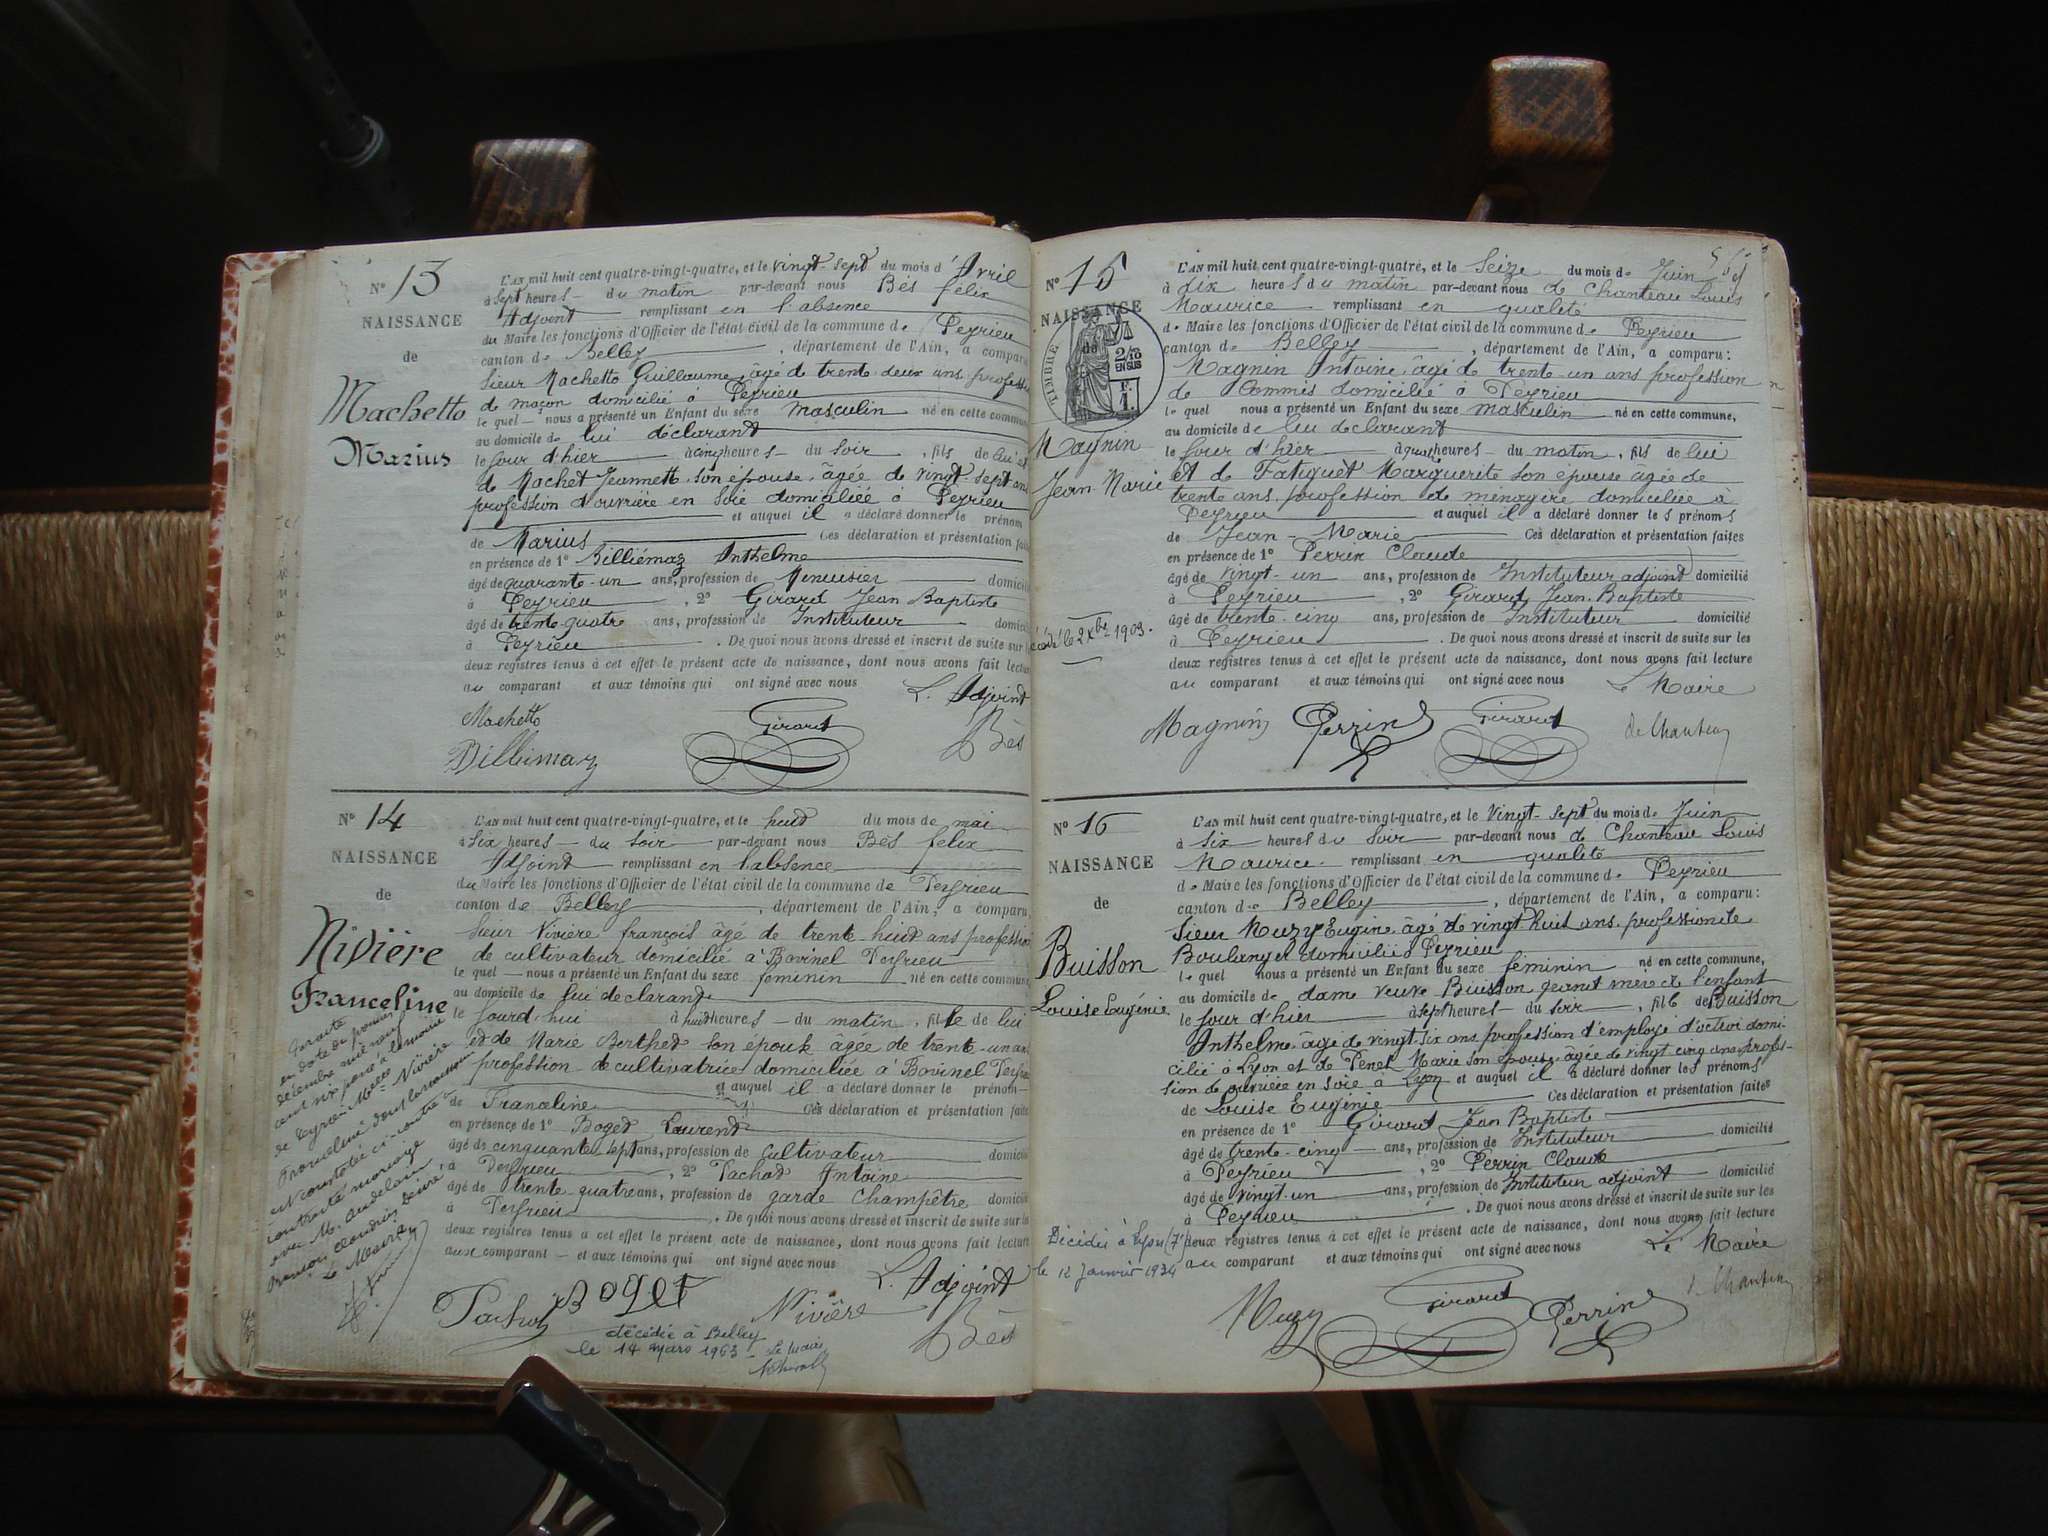 N° 13
NAISSANCE
de
Machetto
Marius
L'AN mil huit cent quatre-vingt-quatre, et le vingt-sept du mois d'Avril
à sept heures du matin par-devant nous Bès félix
Adjoint remplissant en l'absence
du Maire les fonctions d'Officier de l'état civil de la commune de Peyrieu
canton de Belley, département de l'Ain, a comparu
Sieur Machetto Guillaume, âgé de trente-deux ans, profession
de maçon domicilié à Peyrieu
le quel nous a présenté un Enfant du sexe masculin né en cette commune
au domicile de lui déclarant
le jour d'hier à cinq heures du soir, fils de lui et
de Machet Jeannette, son épouse, âgée de vingt-sept ans
profession d'ouvrière en soie domiciliée à Peyrieu
et auquel il a déclaré donner le prénom
de Marius Ces déclaration et présentation faites
en présence de 1° Billiémaz Anthelme
âgé de quarante-un ans, profession de Menuisier domicilié
à Peyrieu, 2° Girard Jean Baptiste
âgé de trente-quatre ans, profession de Instituteur domicilié
à Peyrieu. De quoi nous avons dressé et inscrit de suite sur les
deux registres tenus à cet effet le présent acte de naissance, dont nous avons fait lecture
au comparant et aux témoins qui ont signé avec nous
L. Adjoint
Machetto
Girard
Bès
Billiemaz
N° 14
NAISSANCE
de
Nivière
Franceline
L'AN mil huit cent quatre-vingt-quatre, et le huit du mois de mai
à six heures du soir par-devant nous Bès felix
Adjoint remplissant en l'absence
du Maire les fonctions d'Officier de l'état civil de la commune de Peyrieu
canton de Belley, département de l'Ain, a comparu
Sieur Nivière françois âgé de trente-huit ans profession
de cultivateur domicilié à Bovinel Peyrieu
le quel nous a présenté un Enfant du sexe féminin né en cette commune
au domicile de lui déclarant
le jourd'hui à huit heures du matin, fille de lui
et de Marie Berthet son épouse âgée de trente-un ans
profession de cultivatrice domiciliée à Bovinel Peyrieu
et auquel il a déclaré donner le prénom
de Franceline Ces déclaration et présentation faites
en présence de 1° Boget Laurent
âgé de cinquante sept ans, profession de Cultivateur domicilié
à Peyrieu, 2° Pachod Antoine
âgé de trente-quatre ans, profession de garde Champêtre domicilié
à Peyrieu. De quoi nous avons dressé et inscrit de suite sur les
deux registres tenus à cet effet le présent acte de naissance, dont nous avons fait lecture
aux comparant et aux témoins qui ont signé avec nous
L. Adjoint
Pachod Boget Nivière Bès
décédée à Belley
le 14 mars 1963
Le Maire
en date du premier
décembre mil neuf
cent six passé à la mairie
de Peyrieu Melle Nivière
Franceline dont la naissance
est constatée ci-contre a
contracté mariage
avec M.
Le Maire
N° 15
NAISSANCE
de
TIMBRE
2/10
EN SUS
F.
1.
Magnin
Jean-Marie
L'AN mil huit cent quatre-vingt-quatre, et le Seize du mois de Juin
à dix heures du matin par-devant nous de Chanteau Louis
Maurice remplissant en qualité
de Maire les fonctions d'Officier de l'état civil de la commune de Peyrieu
canton de Belley, département de l'Ain, a comparu:
Magnin Antoine, âgé de trente-un ans profession
de Commis domicilié à Peyrieu
le quel nous a présenté un Enfant du sexe masculin né en cette commune,
au domicile de lui déclarant
le jour d'hier à quatre heures du matin, fils de lui
et de Fatiguet Marguerite son épouse âgée de
trente ans, profession de ménagère domiciliée à
Peyrieu et auquel il a déclaré donner les prénoms
de Jean-Marie Ces déclaration et présentation faites
en présence de 1° Perrin Claude
âgé de vingt-un ans, profession de Instituteur adjoint domicilié
à Peyrieu, 2° Girard Jean-Baptiste
âgé de trente-cinq ans, profession de Instituteur domicilié
à Peyrieu. De quoi nous avons dressé et inscrit de suite sur les
deux registres tenus à cet effet le présent acte de naissance, dont nous avons fait lecture
au comparant et aux témoins qui ont signé avec nous
Le Maire
le 2 Xbre 1903.
Magnin Perrin Girard de Chanteau
N° 16
NAISSANCE
de
Buisson
Louise Eugénie
L'AN mil huit cent quatre-vingt-quatre, et le Vingt-sept du mois de Juin
à six heures du soir par-devant nous de Chanteau Louis
Maurice remplissant en qualité
de Maire les fonctions d'Officier de l'état civil de la commune de Peyrieu
canton de Belley, département de l'Ain, a comparu:
Sieur Muzy Eugène, âgé de vingt huit ans, profession de
Boulanger domicilié à Peyrieu
le quel nous a présenté un Enfant du sexe féminin né en cette commune,
au domicile de dame veuve Buisson grand mère de l'enfant
le jour d'hier à sept heures du soir, fille de Buisson
Anthelme, âgé de vingt-six ans profession d'employé d'octroi domi-
cilié à Lyon et de Penet Marie son épouse, âgée de vingt cinq ans profes-
sion de ouvrière en soie à Lyon et auquel il a déclaré donner les prénoms
de Louise Eugénie Ces déclaration et présentation faites
en présence de 1° Girard Jean Baptiste
âgé de trente-cinq ans, profession de Instituteur domicilié
à Peyrieu, 2° Perrin Claude
âgé de vingt-un ans, profession de Instituteur adjoint domicilié
à Peyrieu. De quoi nous avons dressé et inscrit de suite sur les
deux registres tenus à cet effet le présent acte de naissance, dont nous avons fait lecture
au comparant et aux témoins qui ont signé avec nous
Le Maire
Décédée à Lyon (7e)
le 12 Janvier 1934
Muzy Girard Perrin de Chanteau